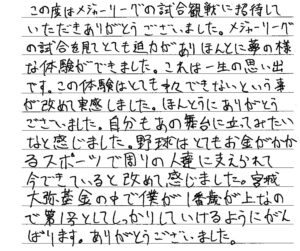 この度はメジャーリーグの試合観戦に招待して
いただきありがとうございました。メジャーリーグ
の試合を見てとても迫力がありほんとに夢の様
な体験ができました。これは一生の思い出
です。この体験はとてもれできないという事
が改めて実感しました。ほんとうにありがとう
ございました。自分もあの舞台に立てみたい
なと感じました。野球はとてもお金がかか
るスポーツで周りの人達に支えられて
今できていると改めて感じました。宮城
大弥基金の中で僕が1番歳が上なの
で第1号としてしっかりしていけるようにがん
ばります。ありがとうございました。